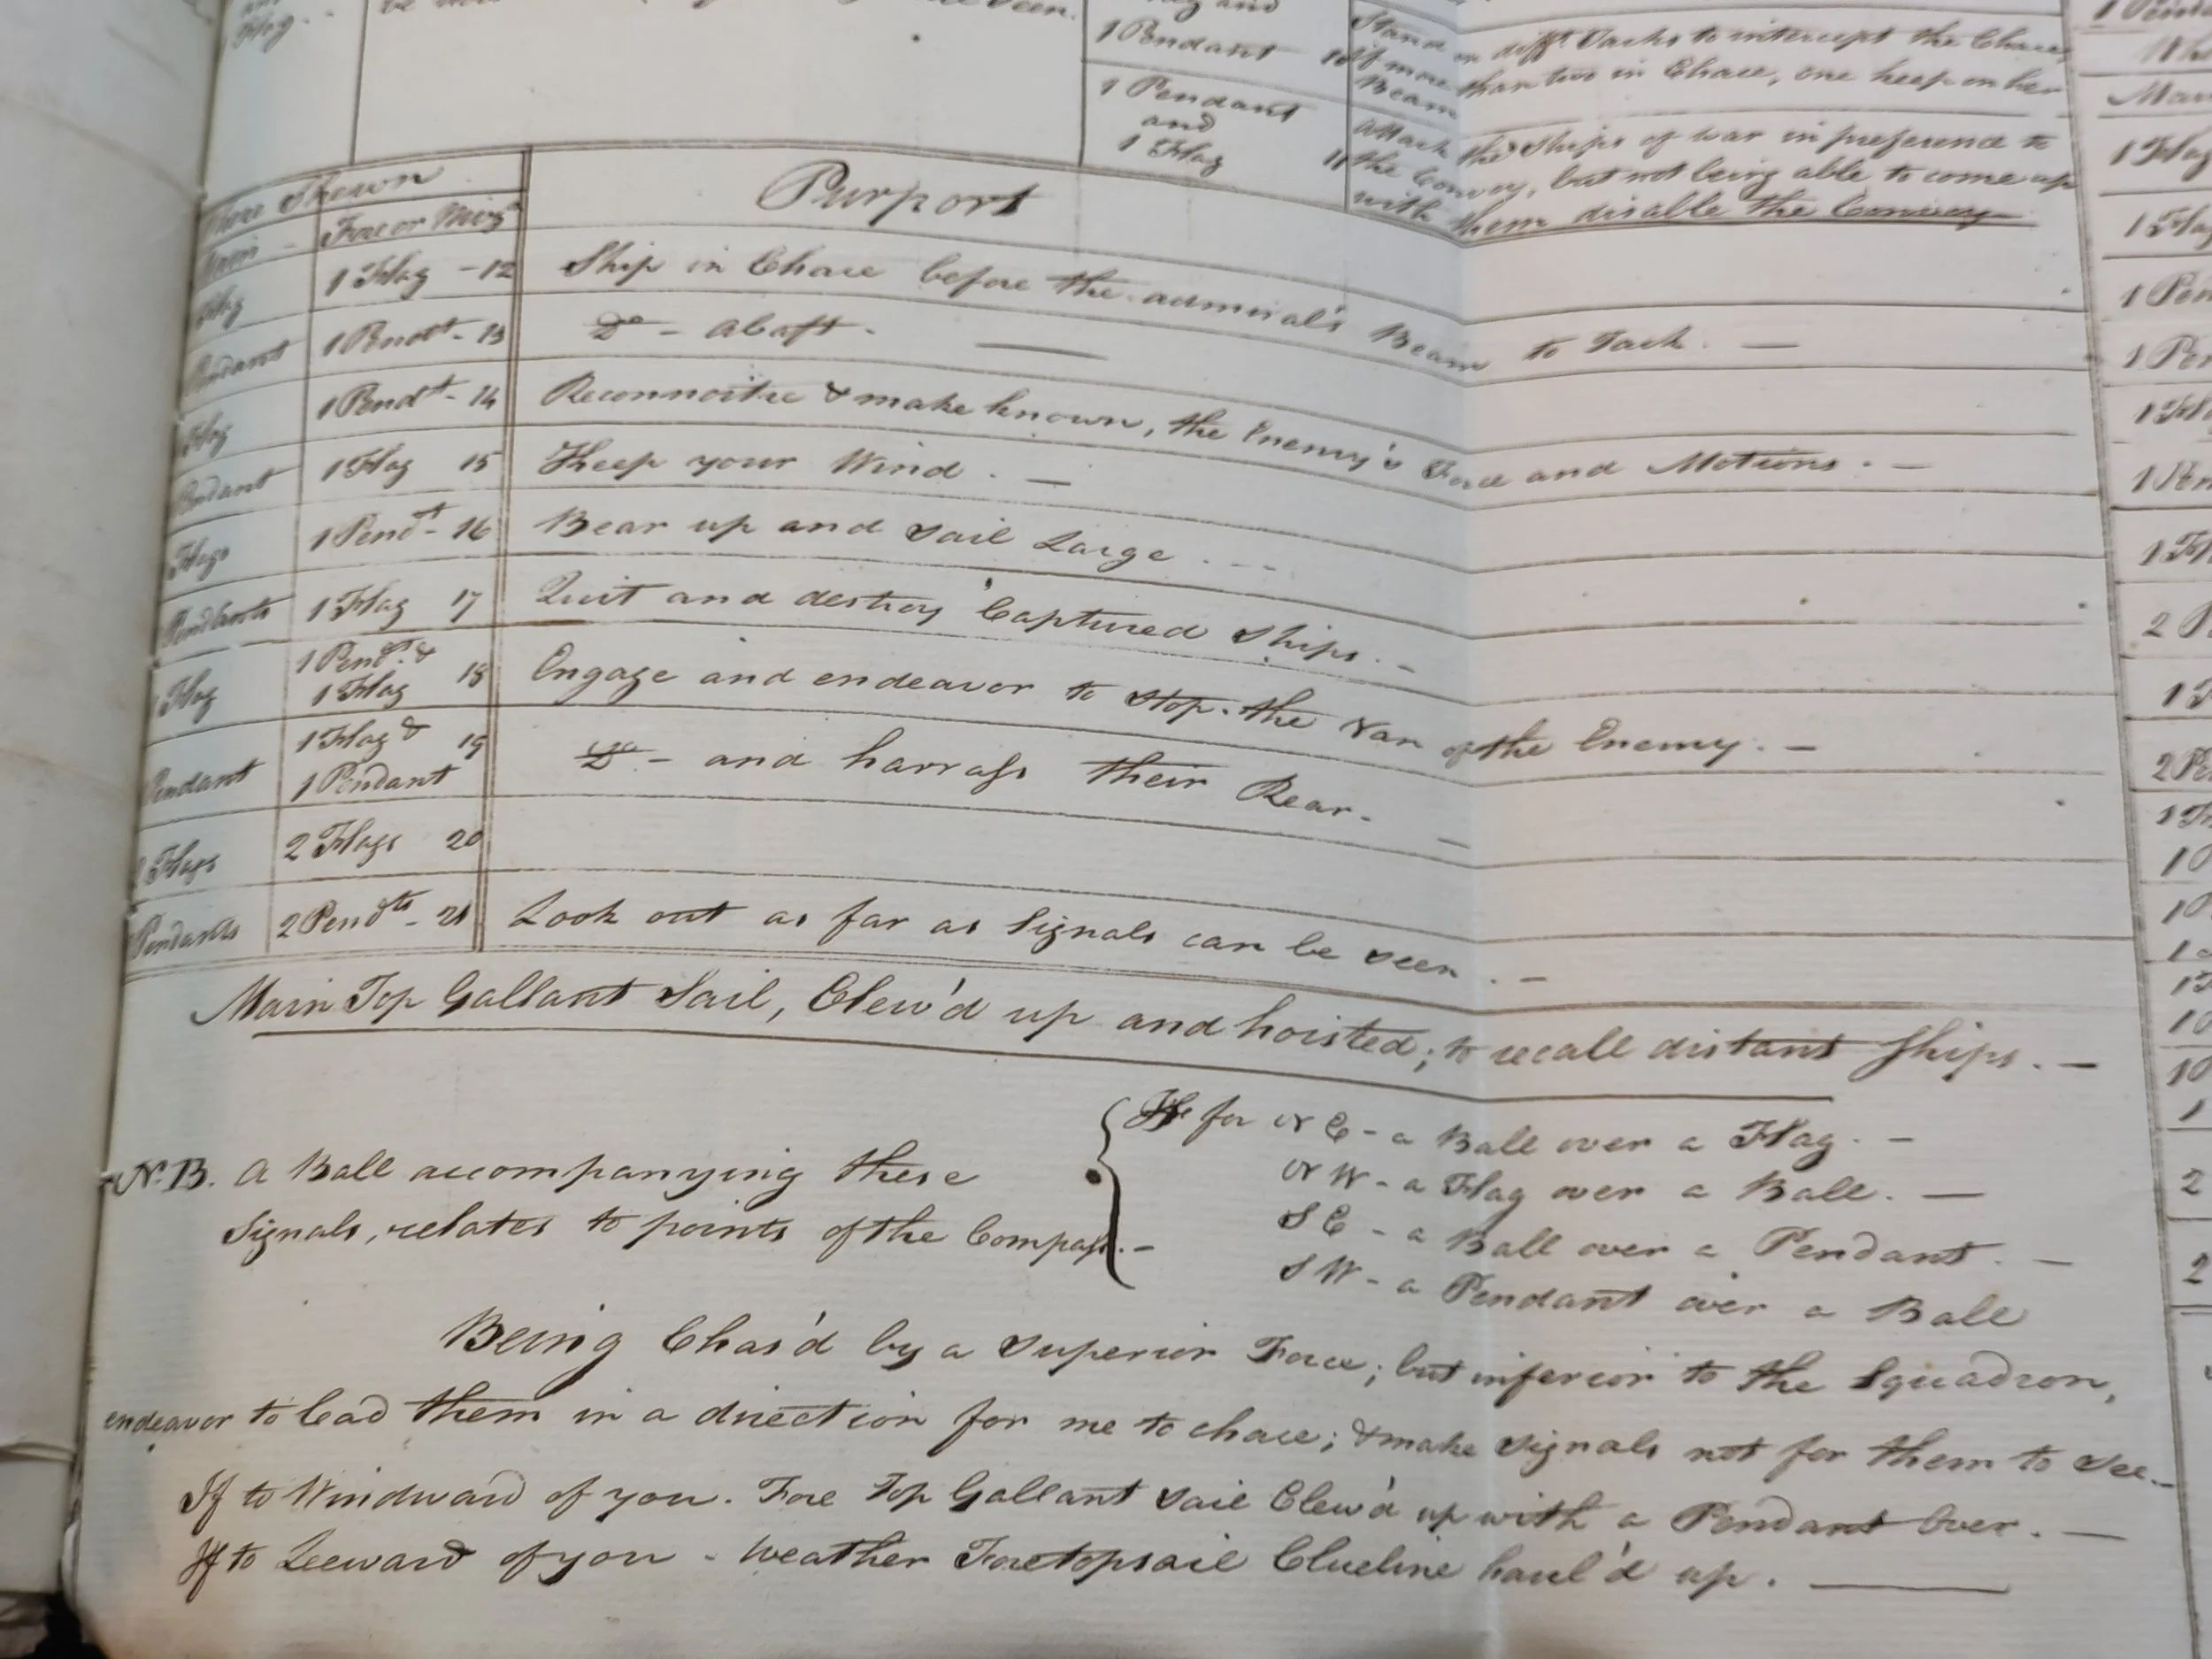 Flag ..
1 Pendant 10
Stand on diff.t Tacks to intercept the Chace,
If more than two in Chace, one keep on her
Beam
1 Pendant
and
1 Flag 11
Attack the Ships of War in preference to
the Convoy, but not being able to come up
with them disable the Convoy
Where Shewn
Main Fore or Miz.n
Purport
Flag 1 Flag - 12 Ship in Chace before the Admiral's Beam to Tack. —
Pendant 1 Pend.t - 13 D.o - Abaft. —
Flag 1 Pend.t - 14 Reconnoitre & make known, the Enemy's Force and Motions. —
Pendant 1 Flag 15 Kheep your Wind. —
Flags 1 Pend.t - 16 Bear up and Sail Large ...
Pendants 1 Flag 17 Quit and destroy Captured Ships. -
1 Flag 1 Pend.t & 1 Flag 18 Engage and endeavor to Stop the Van of the Enemy. -
Pendant 1 Flag & 1 Pendant 19 D.o - and harrass their Rear. —
2 Flags 2 Flags 20
Pendants 2 Pend.ts - 21 Look out as far as Signals can be seen. -
Main Top Gallant Sail, Clew'd up and hoisted; to recall distant Ships. —
N.B. A Ball accompanying these
Signals, relates to points of the Compass. -
for N E - a Ball over a Flag. —
N W - a Flag over a Ball. —
S E - a Ball over a Pendant. —
S W - a Pendant over a Ball
Being Chas'd by a Superior Force; but inferior to the Squadron,
endeavor to lead them in a direction for me to chace; & make signals not for them to see.—
If to Windward of you. Fore Top Gallant Sail Clew'd up with a Pendant Over. —
If to Leeward of you - Weather Foretopsail Clueline haul'd up. —
1 Flag
1 Flag
1 Pen
1 Pen
2 P
2
2